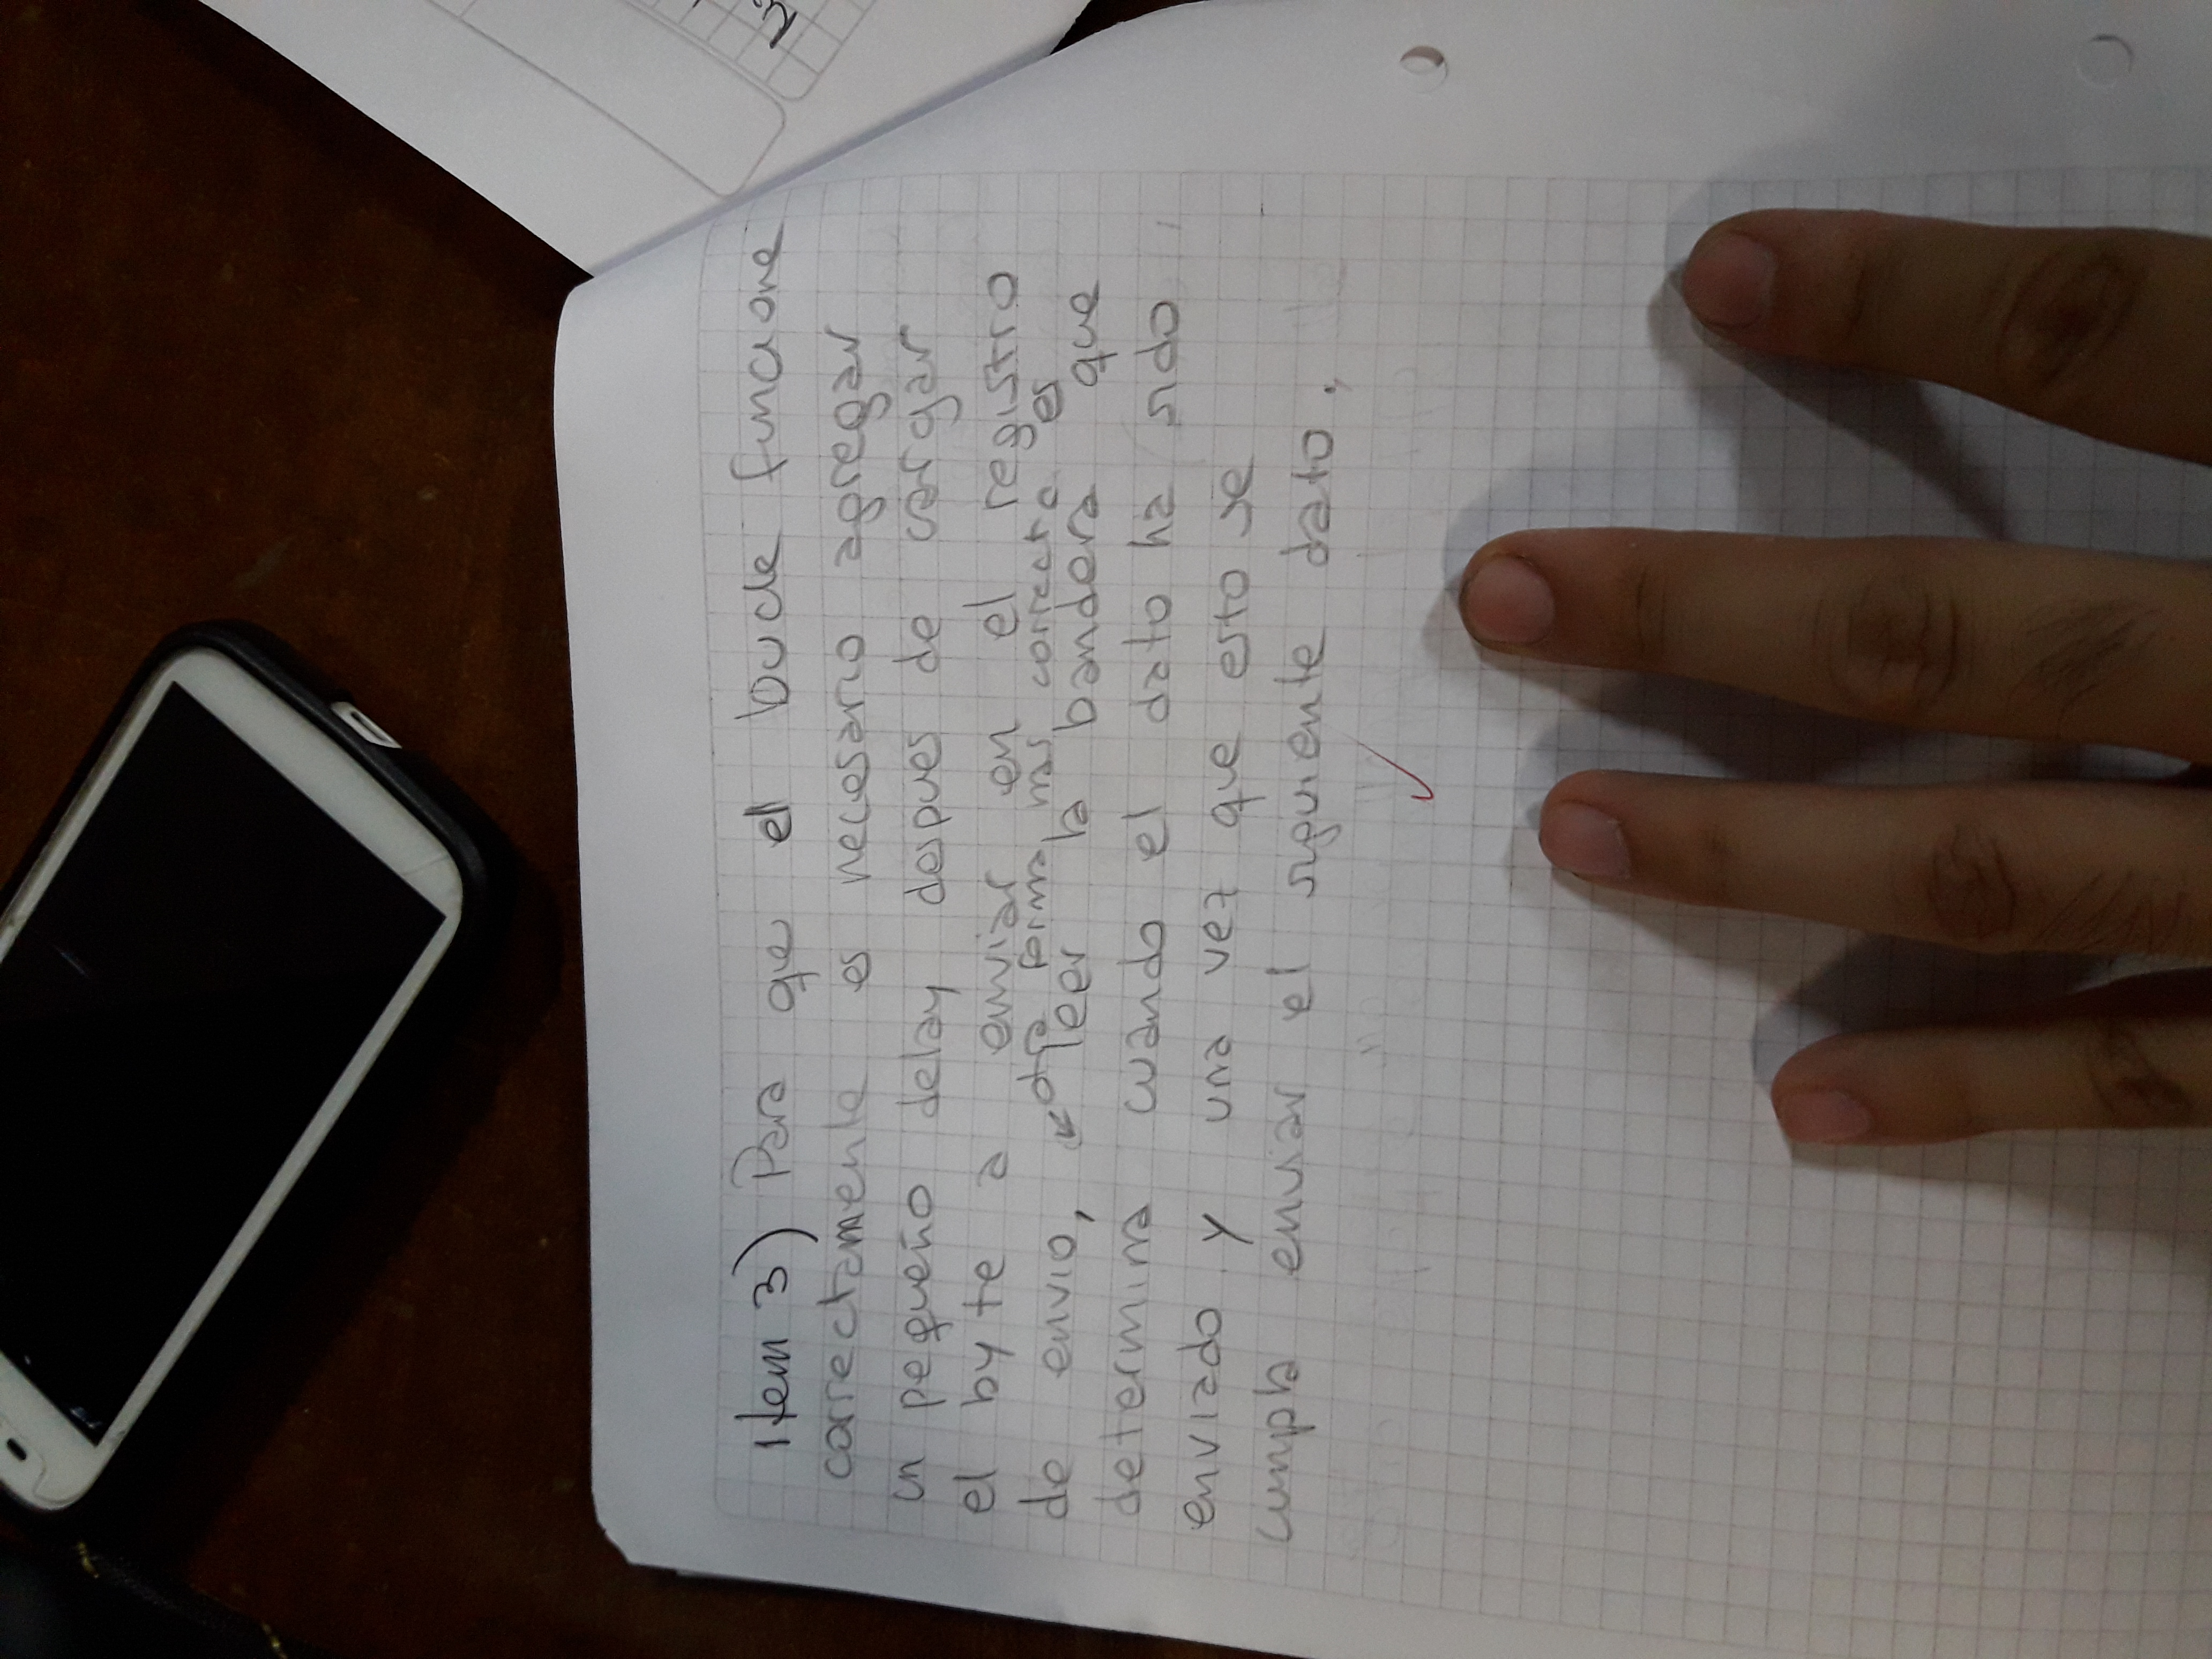 Item 3) Para que el bucle funcione
correctamente es necesario agregar
un pequeño delay despues de cargar
el byte a enviar en el registro
otra forma mas correcta es
de envio, leer la bandera que
determina cuando el dato ha sido
enviado y una vez que esto se
cumpla enviar el siguiente dato.